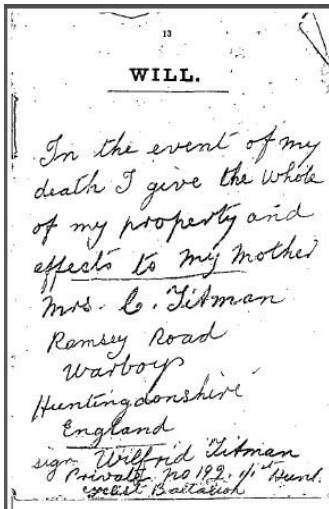 13
WILL.
In the event of my
death I give the whole
of my property and
effects to my Mother
Mrs. C. Titman
Ramsey Road
Warboys
Huntingdonshire
England
sign Wilfrid Titman
Private no 192. 1/1st Hunt.
cyclist Battalion